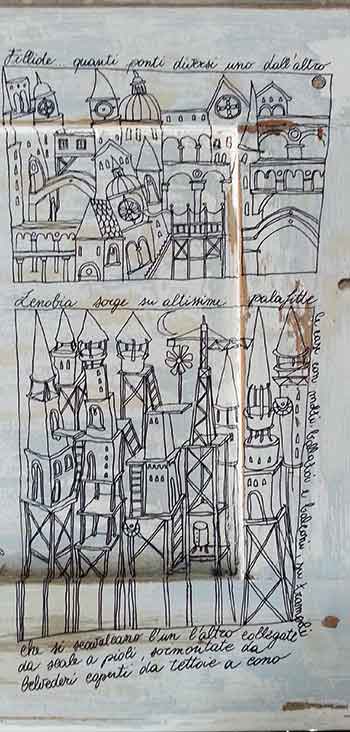 Fillide... quanti ponti diversi uno dall'altro
Zenobia sorge su altissime palafitte
le case con molti ballatoi e balconi su trampoli
che si scavalcano l'un l'altro collegate
da scale a pioli, sormontate da
belvederi coperti da tettoie a cono